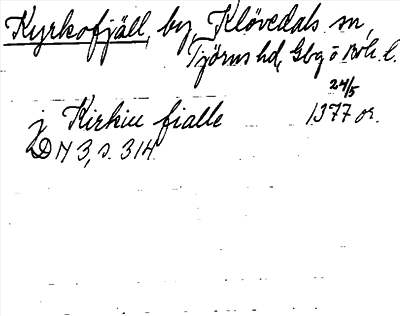 Kyrkofjäll, by, Klövedals sn,
Tjörns hd, Gbg o Boh. l.
24/5
j Kirkiu fialle 1377 or.
DN 3, s. 314.